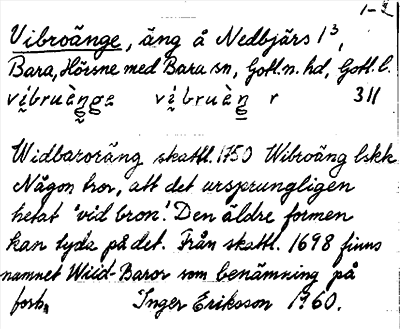 1-2
Vibroänge, äng å Nedbjärs 1³,
Bara, Hörsne med Bara sn, Gotl.n. hd, Gotl. l.
vi̬bruèn̬ge vi̬bruèn̬ r 311
Widbaroräng skattl. 1750 Wibroäng lskk
Någon tror, att det ursprungligen
hetat 'vid bron'. Den äldre formen
kan tyda på det. Från skattl. 1698 finns
namnet Wiid-Baror som benämning på
Inger Eriksson 1960.